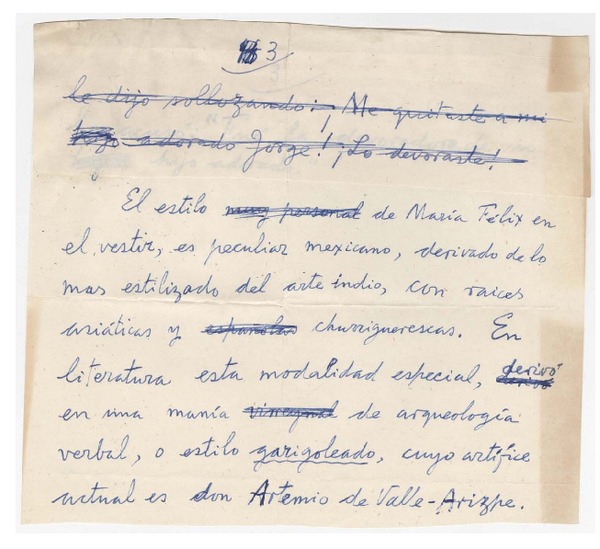 3
le dijo sollozando: ¡Me quitaste a mi
hijo adorado Jorge! ¡Lo devoraste!
El estilo muy personal de María Félix en
el vestir, es peculiar mexicano, derivado de lo
mas estilizado del arte indio, con raices
asiáticas y españolas churriguerescas. En
literatura esta modalidad especial, derivó
en una manía de arqueología
verbal, o estilo garigoleado, cuyo artífice
actual es don Artemio de Valle-Arizpe.